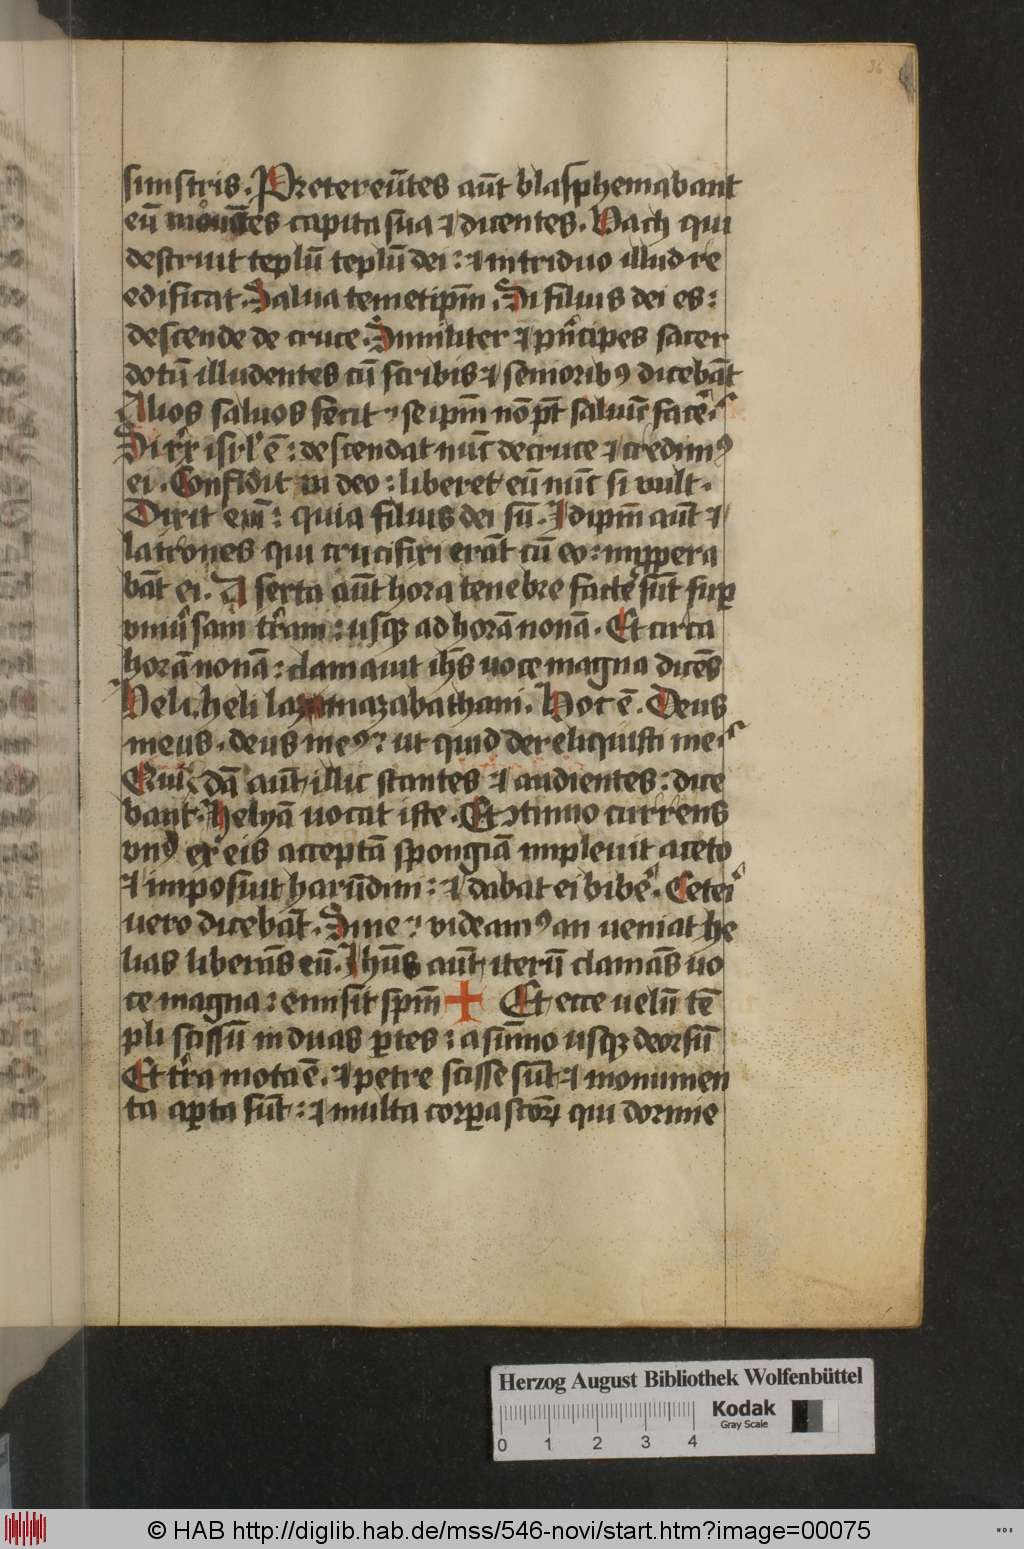 36
sinistris. Pretereũtes aũt blasphemabant
eũ mouẽtes capita sua ⁊ dicentes. Vach qui
destruit teplũ teplũ dei : ⁊ in triduo illud re
edificat. Salua temetipm̃. Si filius dei es :
descende de cruce. Similiter ⁊ pncipes sacer
dotũ illudentes cũ scribis ⁊ seniorib⁹ dicebãt
Alios saluos fecit : seipm̃ nõ põt saluũ facẽ.
Si rex isrl̃ ẽ : descendat nũc de cruce ⁊ credim⁹
ei. Confidit in deo : liberet eũ nũc si vult.
Dixit eni͂ : quia filius dei sũ. Idipm̃ aũt ⁊
latrones qui crucifixi erãt cũ eo : impropera
bãt ei. A sexta aũt hora tenebre facte sũt suꝑ
vniũsam terram : usqꝫ ad horã nonã. Et circa
horã nonã : clamauit ihs̃ uoce magna dicẽs
Heli, heli lazamazabathani. Hoc ẽ. Deus
meus, deus me⁹ : ut quid dereliquisti me.
Quidã aũt illic stantes ⁊ audientes : dice
bant. Helyã uocat iste. Et ꝯtinuo currens
vn⁹ ex eis acceptã spongiã impleuit aceto
⁊ imposuit harũdini : ⁊ dabat ei bibẽ. Ceteri
uero dicebãt. Sine : videam⁹ an ueniat he
lias liberãs eũ. Ihũs aũt iterũ clamãs uo
ce magna : emisit spm̃ + Et ecce uelũ tẽ
pli scissũ in duas ꝑtes : a sũmo usqꝫ deorsũ
Et terra mota ẽ. ⁊ petre scisse sũt ⁊ monumen
ta aꝑta sũt : ⁊ multa corꝑa scoꝝ qui dormie
Herzog August Bibliothek Wolfenbüttel
Kodak
Gray Scale
0 1 2 3 4
© HAB http://diglib.hab.de/mss/546-novi/start.htm?image=00075